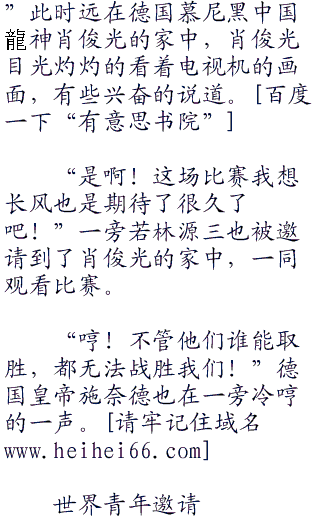 ”此时远在德国慕尼黑中国
龍神肖俊光的家中，肖俊光
目光灼灼的看着电视机的画
面，有些兴奋的说道。[百度
一下“有意思书院”]
“是啊！这场比赛我想
长风也是期待了很久了
吧！”一旁若林源三也被邀
请到了肖俊光的家中，一同
观看比赛。
“哼！不管他们谁能取
胜，都无法战胜我们！”德
国皇帝施奈德也在一旁冷哼
的一声。[请牢记住域名
www.heihei66.com]
世界青年邀请